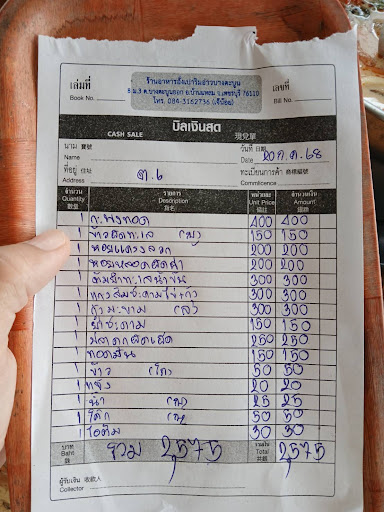 เล่มที่
Book No.
ร้านอาหาร ริมอ่าวบางตะบูน
8 ม.3 ต.บางตะบูนออก อ.บ้านแหลม จ.เพชรบุรี 76110
โทร. 084-3162736 (เจ๊น้อย)
เลขที่
Bill No.
CASH SALE บิลเงินสด 現兌單
นาม 寶號
Name
วันที่ 日期
Date 20 ก.ค. 68
ที่อยู่ 住址
Address ต.6
ทะเบียนการค้า 商標編號
Commlicence
จำนวน Quantity 數量 รายการ Desdription 貨名 หน่วยละ Unit Price 價計 จำนวนเงิน Amount 銀額
1 ก.พงทอด 400 400
1 ข้าวผัดทะเล (ญ) 150 150
1 หอยแครงลวก 200 200
1 หอยหลอดผัดฉ่า 200 200
1 ต้มยำทะเลน้ำข้น 300 300
1 แกงส้มชะคามไข่+กุ้ง 300 300
1 กุ้งมะขาม (ส) 300 300
1 ยำชะคาม 150 150
1 ปลาดุกผัดเผ็ด 250 250
1 ทอดมัน 150 150
1 ข้าว (โถ) 50 50
1 แข็ง 20 20
1 น้ำ (ญ) 25 25
1 โค้ก (ญ) 50 50
1 ไอติม 30 30
บาท Baht 銖 รวม 2,575 รวมเงิน Total 共銖 2,575
ผู้รับเงิน 收款人
Collector